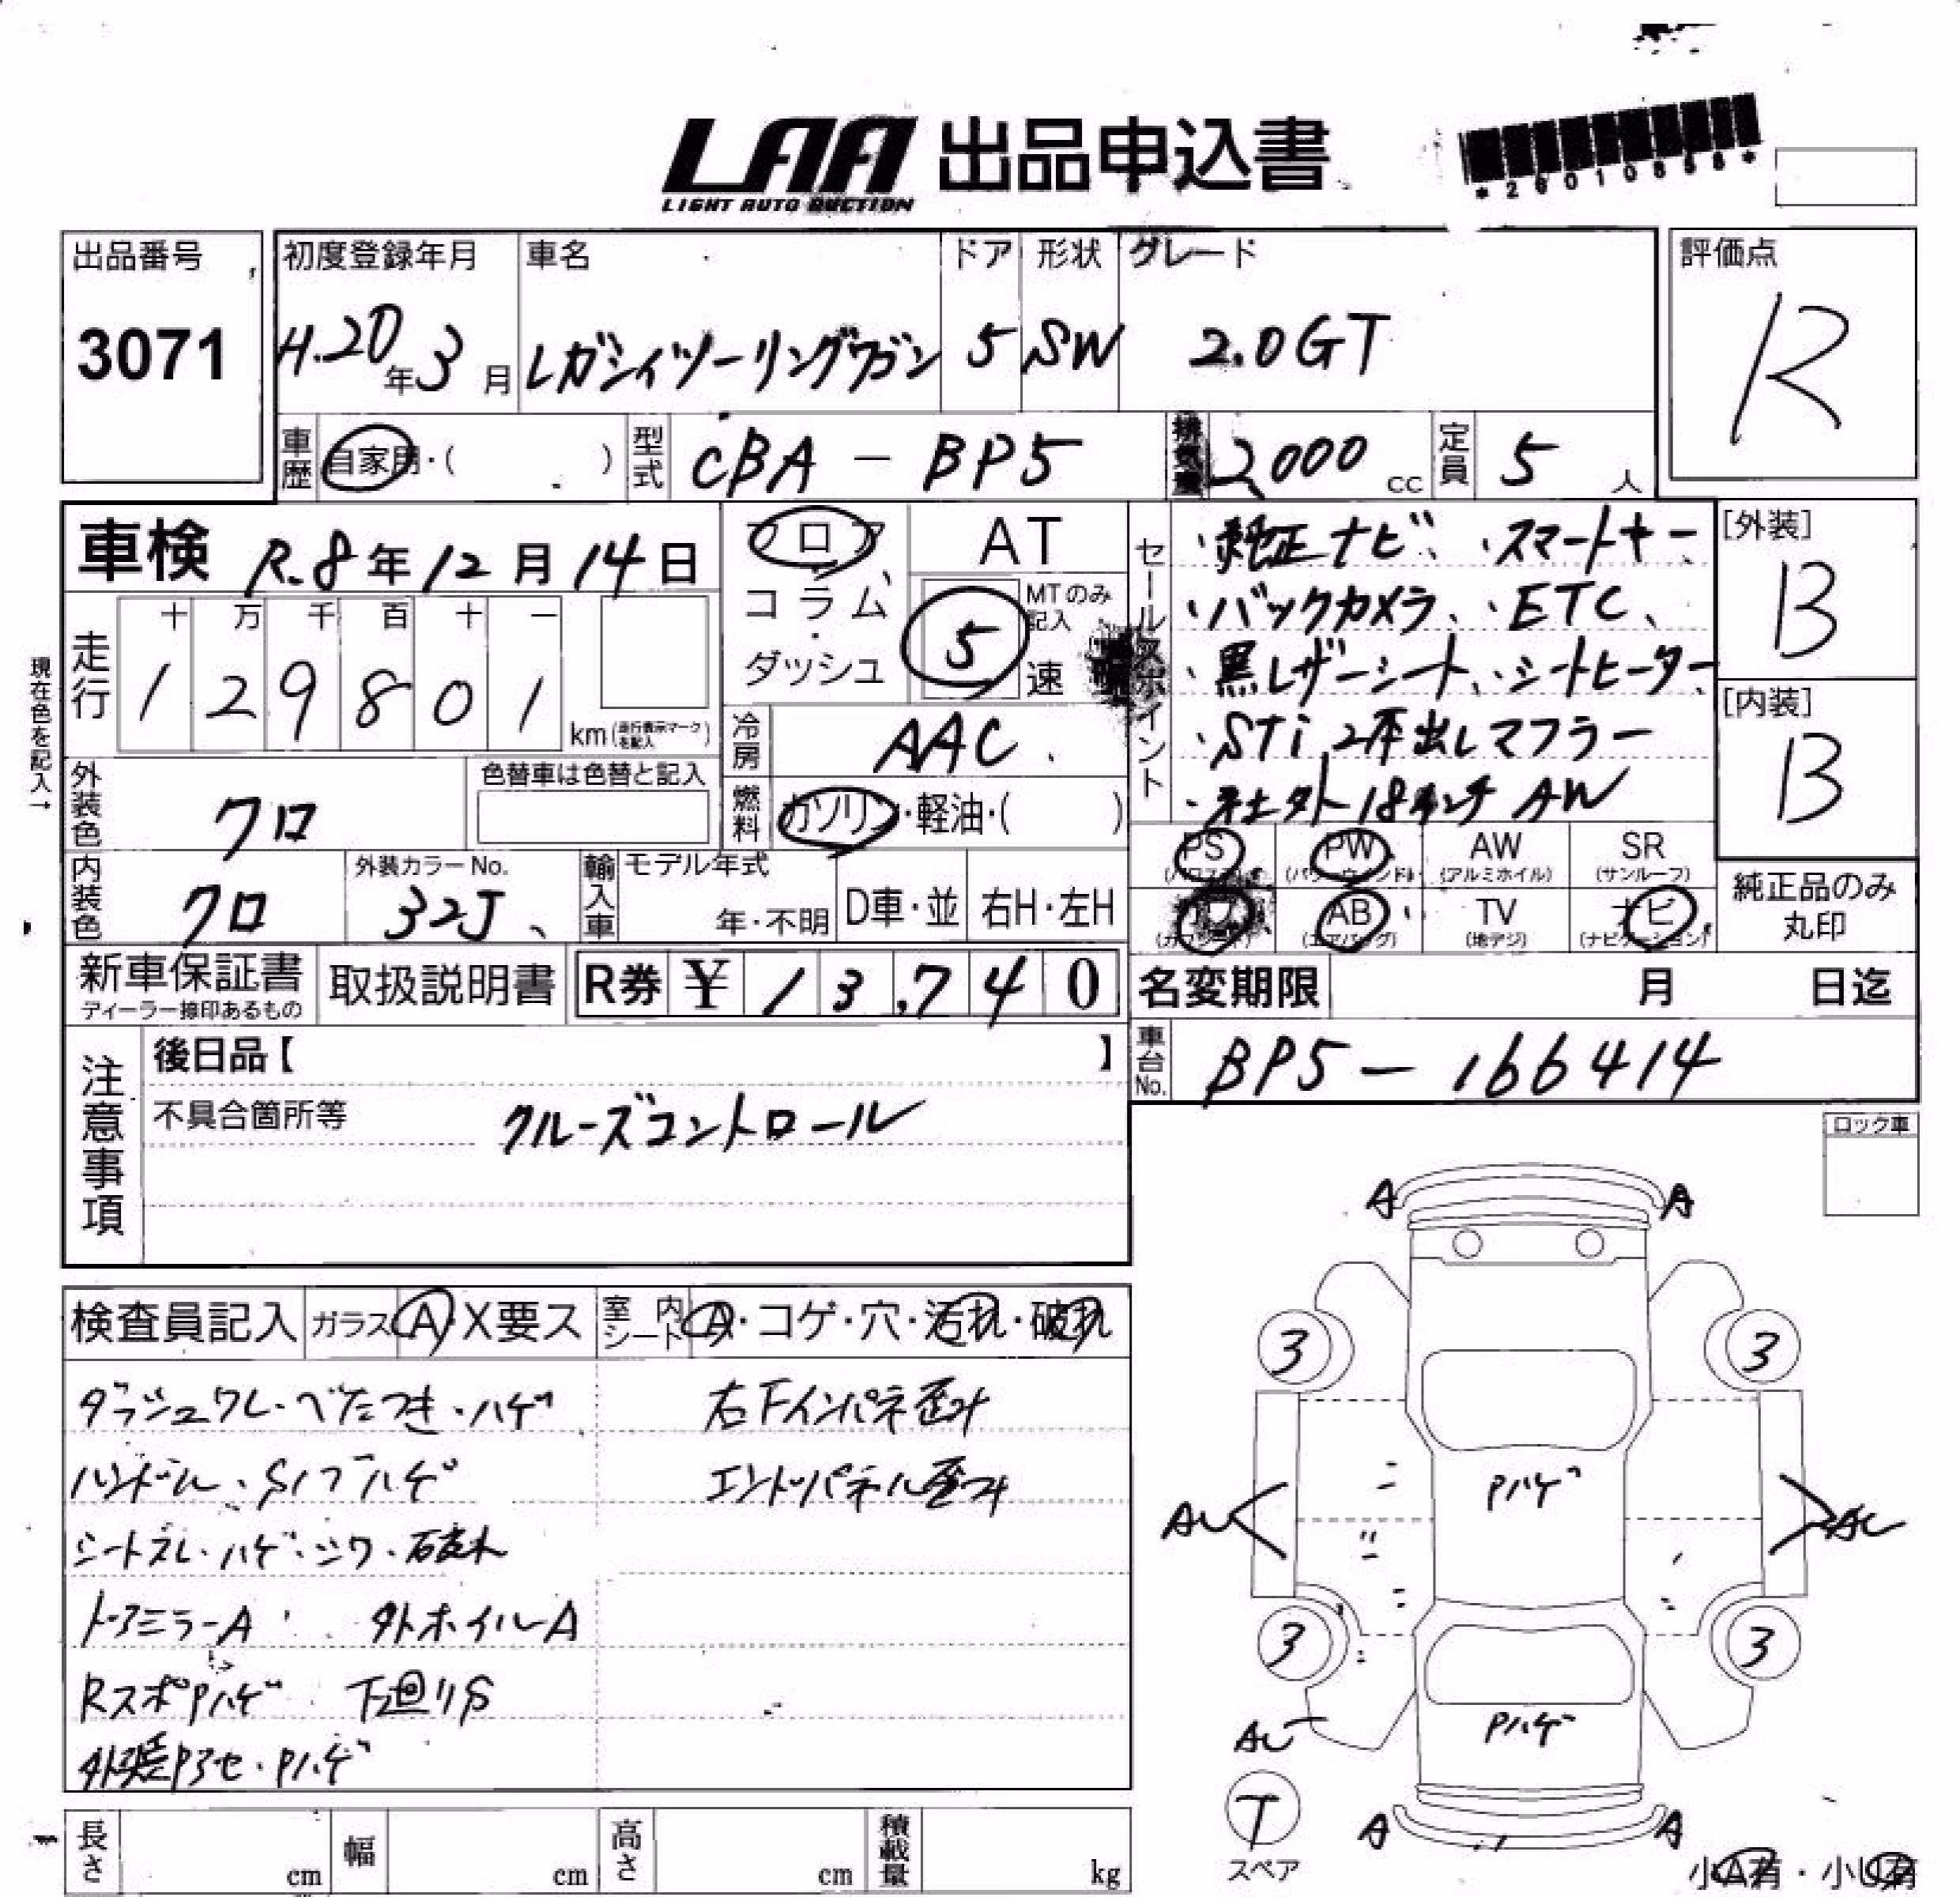 LAA 出品申込書
LIGHT AUTO AUCTION
*28010858*
出品番号
3071
初度登録年月 車名 ドア 形状 グレード
H.20年3月 レガシィツーリングワゴン 5 SW 2.0GT
評価点
R
車歴 自家用・( ) 型式 CBA - BP5 排気量 2000 cc 定員 5人
車検 R.8年12月14日
現在色を記入→
走行 十万千百十一
129801 km(走行表示マークを記入)
フロア・コラム・ダッシュ
AT
MTのみ記入
5速
冷房 AAC
燃料 ガソリン・軽油・( )
セールスポイント
・純正ナビ、・スマートキー
・バックカメラ、・ETC、
・黒レザーシート、・シートヒーター
・STi 2本出しマフラー
・社外18インチAW
[外装]
B
[内装]
B
外装色 クロ
色替車は色替と記入
内装色 クロ
外装カラーNo.
32J
輸入車 モデル年式 年・不明 D車・並 右H・左H
PS PW AW SR
(パワステ) (パワーウインド) (アルミホイル) (サンルーフ)
カワ AB TV ナビ
(カワシート) (エアバッグ) (地デジ) (ナビゲーション)
純正品のみ丸印
新車保証書
ディーラー捺印あるもの
取扱説明書
R券 ¥ 13,740
名変期限 月 日迄
車台No. BP5-166414
注意事項
後日品【 】
不具合箇所等 クルーズコントロール
ロック車
検査員記入 ガラス A X要ス 室内シート A・コゲ・穴・汚れ・破れ
ダッシュワレ・べたつき・ハゲ 右Fインパネ歪み
ハンドル・Sノブハゲ エンドパネル歪み
シートスレ・ハゲ・シワ・破れ
ドアミラーA 外ホイルA
RスポPハゲ 下廻りS
外装Pアセ・Pハゲ
A A
3 3
Pハゲ
AU AU
3 3
Pハゲ
AU
T
スペア
A A
小A有・小U有
長さ cm 幅 cm 高さ cm 積載量 kg